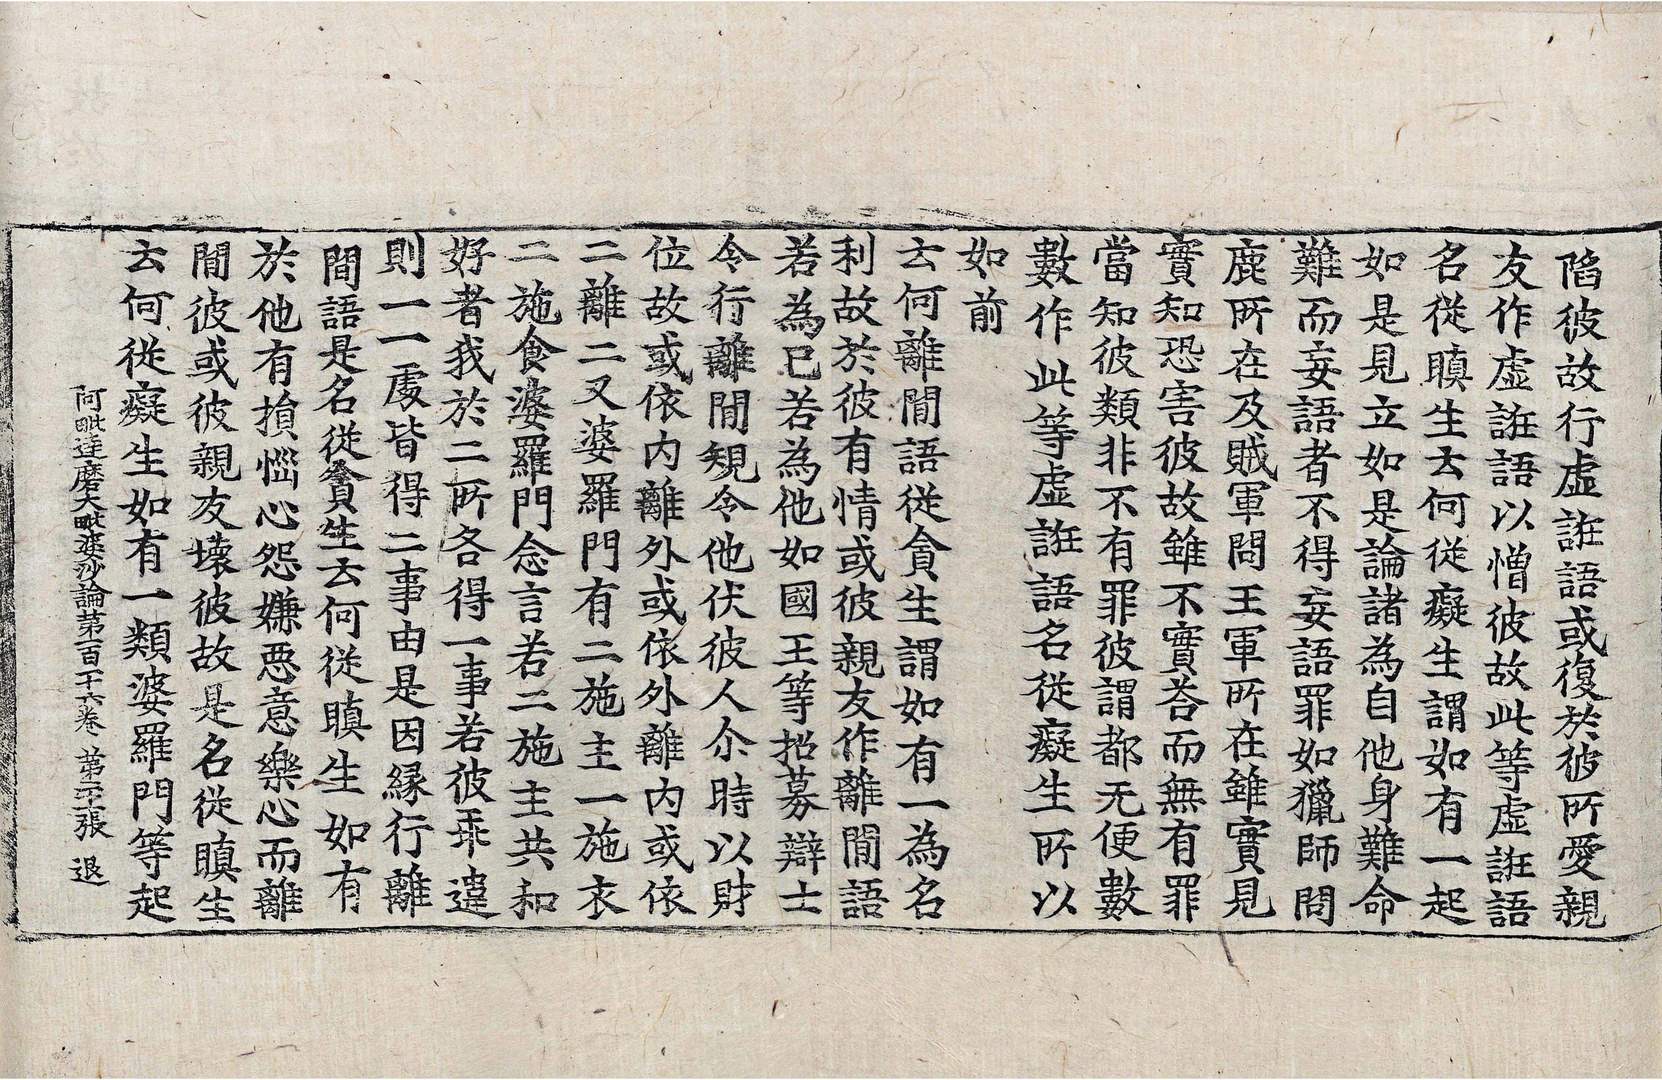 陷彼故行虛誑語或復於彼所愛親
友作虛誑語以憎彼故此等虛誑語
名從瞋生云何從癡生謂如有一起
如是見立如是論諸為自他身難命
難而妄語者不得妄語罪如獵師問
鹿所在及賊軍問王軍所在雖實見
實知恐害彼故雖不實荅而無有罪
當知彼類非不有罪彼謂都无便數
數作此等虛誑語名從癡生所以
如前
云何離間語從貪生謂如有一為名
利故於彼有情或彼親友作離間語
若為已若為他如國王等招募辯士
令行離間䂓令他伏彼人尒時以財
位故或依內離外或依外離內或依
二離二又婆羅門有二施主一施衣
二施食婆羅門念言若二施主共和
好者我於二所各得一事若彼乖違
則一一處皆得二事由是因緣行離
間語是名從貪生云何從瞋生如有
於他有損惱心怨嫌惡意樂心而離
間彼或彼親友壞彼故是名從瞋生
云何從癡生如有一類婆羅門等起
阿毗達磨大毗婆沙論第百十六卷 第二十張 退